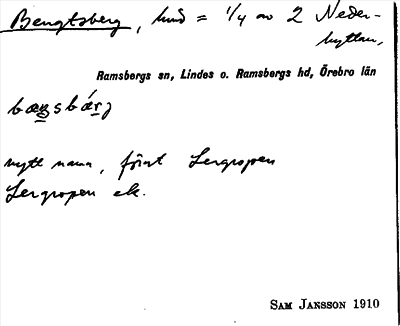 Bengtsberg, hmd = 1/4 av 2 Neder-
hyttan,
Ramsbergs sn, Lindes o. Ramsbergs hd, Örebro län
nytt namn, förut Lergropen
Lergropen ek.
SAM JANSSON 1910